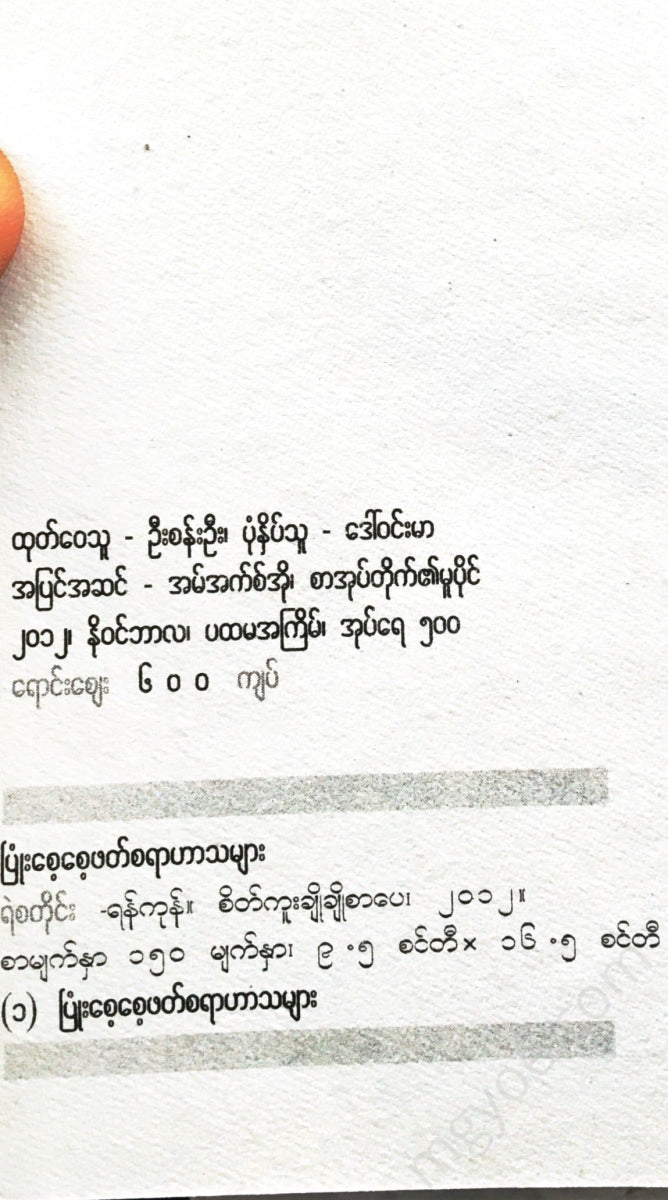 ထုတ်ဝေသူ - ဦးစန်းဦး၊ ပုံနှိပ်သူ - ဒေါ်ဝင်းမာ
အပြင်အဆင် - အမ်အက်စ်အို၊ စာအုပ်တိုက်၏မူပိုင်
၂၀၁၂၊ နိုဝင်ဘာလ၊ ပထမအကြိမ်၊ အုပ်ရေ ၅၀၀
ရောင်းဈေး ၆၀၀ ကျပ်
ပြုံးစေ့စေ့ဖတ်စရာဟာသများ
ရဲစတိုင်း -ရန်ကုန်။ စိတ်ကူးချိုချိုစာပေ၊ ၂၀၁၂။
စာမျက်နှာ ၁၅၀ မျက်နှာ၊ ၉.၅ စင်တီ × ၁၆.၅ စင်တီ
(၁) ပြုံးစေ့စေ့ဖတ်စရာဟာသများ